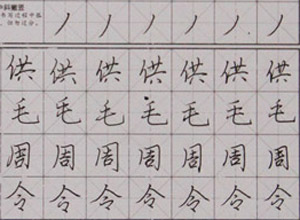 丿丿丿丿丿丿
供供供供供供供
毛毛毛毛毛毛毛
周周周周周周周
令令令令令令令